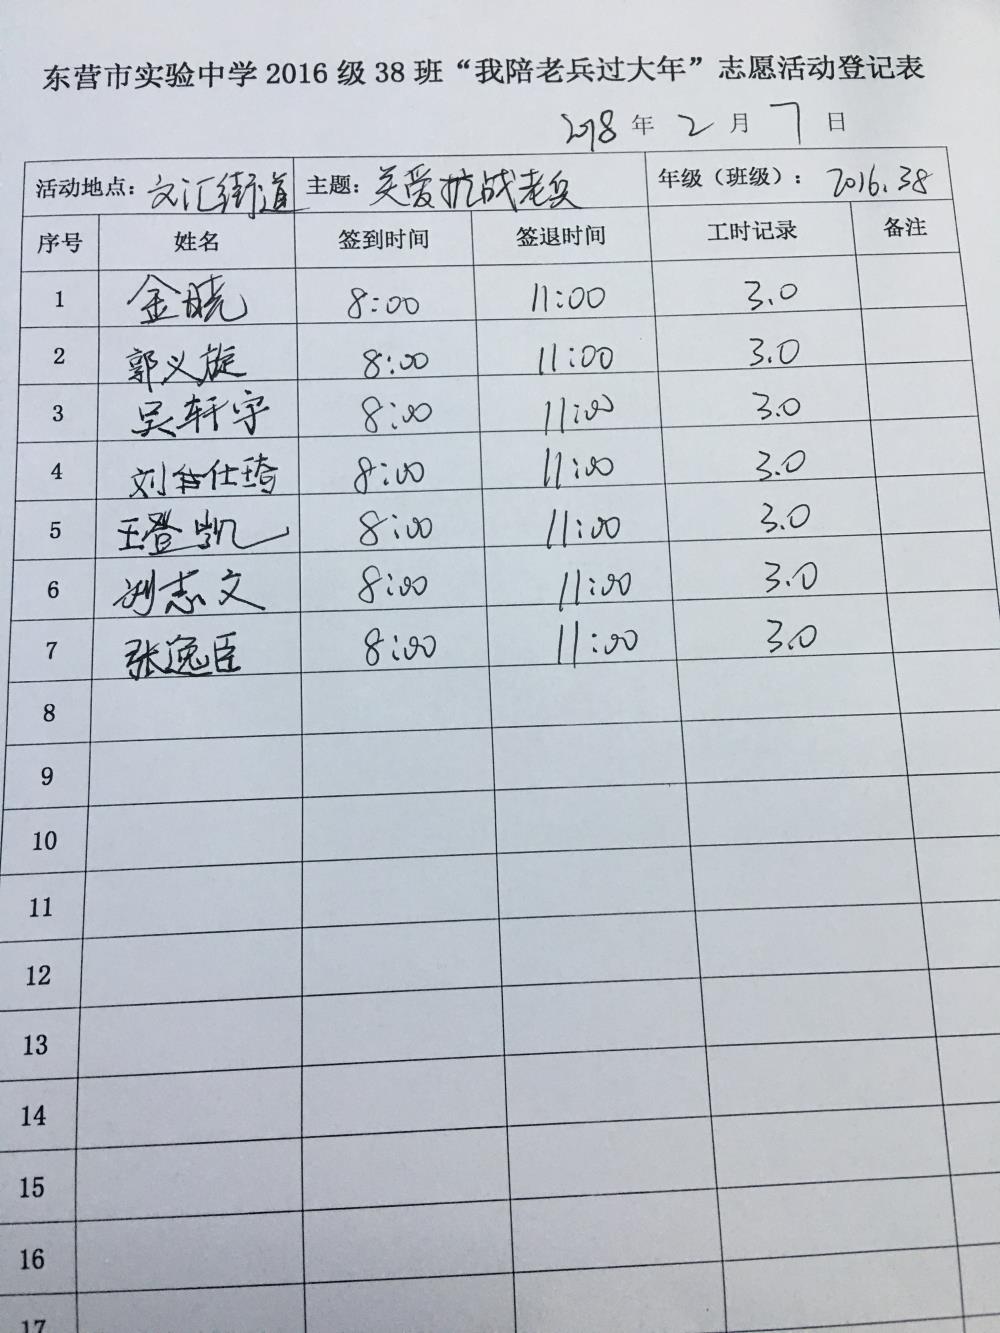 东营市实验中学2016级38班“我陪老兵过大年”志愿活动登记表
2018年2月7日
活动地点：文汇街道 主题：关爱抗战老兵 年级（班级）：2016.38
序号 姓名 签到时间 签退时间 工时记录 备注
1 金晓 8:00 11:00 3.0
2 郭义旋 8:00 11:00 3.0
3 吴轩宇 8:00 11:00 3.0
4 刘仕琦 8:00 11:00 3.0
5 王登凯 8:00 11:00 3.0
6 刘志文 8:00 11:00 3.0
7 张逸臣 8:00 11:00 3.0
8
9
10
11
12
13
14
15
16
17